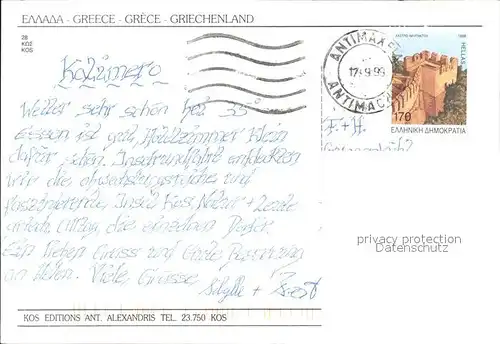 ΕΛΛΑΔΑ - GREECE - GRÈCE - GRIECHENLAND
28
ΚΩΣ
KOS
Kaliméra
Wetter sehr schön heiß 33°
Essen ist gut, Hotelzimmer klein
dafür schön. Inselrundfahrt entdeckten
wir die abwechslungsreiche und
faszinierende Insel Kos, Natur + Leute
griech. Alltag, die einzelnen Dörfer.
Ein lieben Gruss und Gute Besserung
an Helen. Viele Grüsse
Sibylle +
ANTIMAXEIA
17.9.99
ANTIMACHIA
HELLAS
170
ΕΛΛΗΝΙΚΗ ΔΗΜΟΚΡΑΤΙΑ
F. + H.
privacy protection
oldthing.com
KOS EDITIONS ANT. ALEXANDRIS TEL. 23.750 KOS